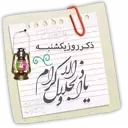 ذکر روز یکشنبه
یا ذالجلال و الاکرام